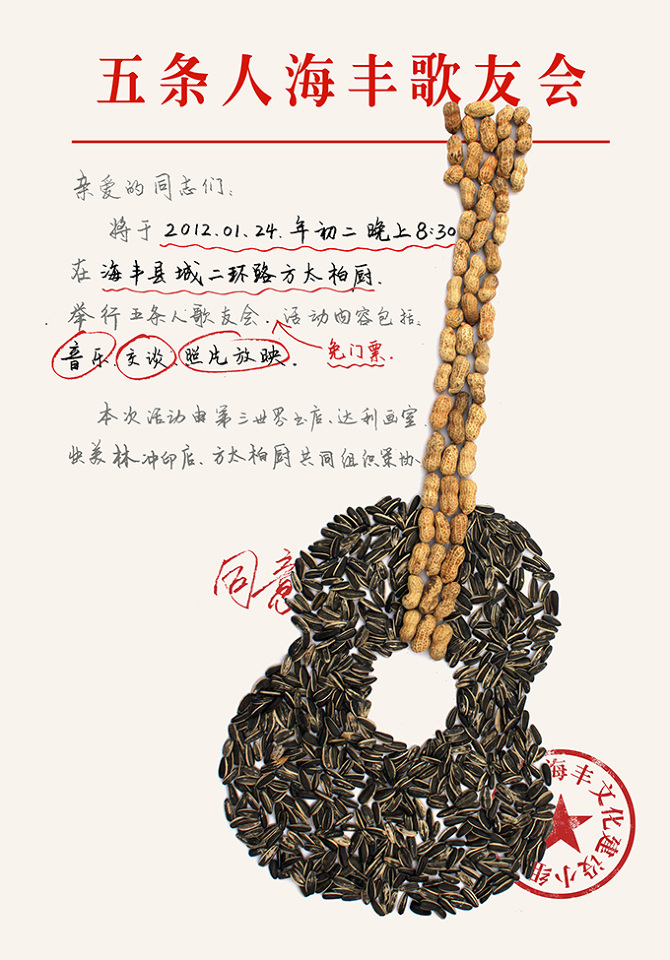 五条人海丰歌友会
亲爱的同志们:
将于 2012.01.24.年初二 晚上8:30
在 海丰县城二环路方太柏厨.
举行五条人歌友会.活动内容包括:
音乐、交谈、照片放映.
免门票.
本次活动由第三世界书店、达利画室
快美林冲印店、方太柏厨共同组织策协
同意
海丰文化建设小组